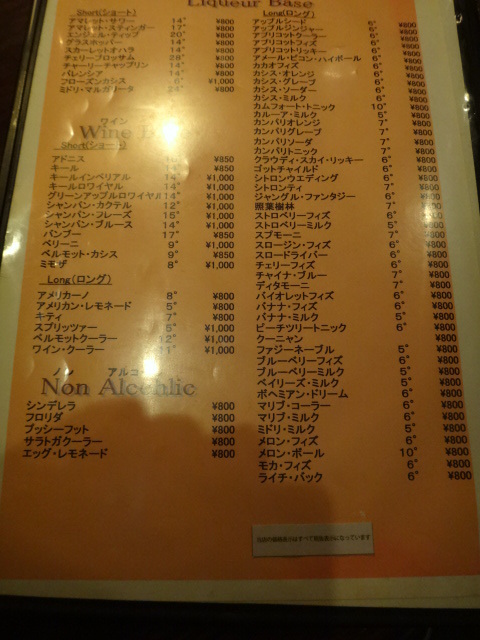 Liqueur Base
Short(ショート)
アマレット・サワー 14° ¥800
アマレット・スティンガー 17° ¥800
エンジェル・ティップ 20° ¥800
グラスホッパー 14° ¥800
スカーレットオハラ 24° ¥800
チェリーブロッサム 28°
チャーリー・チャップリン 14° ¥800
バレンシア 14° ¥800
フローズンカシス 6° ¥1,000
ミドリ・マルガリータ 24° ¥800
ワイン
Wine
Short(ショート)
アドニス ¥850
キール ¥850
キールインペリアル 14° ¥1,000
キールロワイヤル 14° ¥1,000
グリーンアップルロワイヤル 14° ¥1,000
シャンパン・カクテル 12° ¥1,000
シャンパン・フレーズ 15° ¥1,000
シャンパン・ブルース 14° ¥1,000
バンブー 17° ¥850
ベリーニ 9° ¥1,000
ベルモット・カシス 9° ¥850
ミモザ 8° ¥1,000
Long(ロング)
アメリカーノ 8° ¥800
アメリカン・レモネード 5° ¥800
キティ 7° ¥800
スプリッツァー 5° ¥1,000
ベルモットクーラー 12° ¥1,000
ワイン・クーラー 11° ¥1,000
ノン アルコ
Non Alcohlic
シンデレラ ¥800
フロリダ ¥800
プッシーフット ¥800
サラトガクーラー ¥800
エッグ・レモネード ¥800
Long(ロング)
アップルシード 5° ¥800
アップルジンジャー 5° ¥800
アプリコットクーラー 6° ¥800
アプリコットフィズ 6° ¥800
アプリコットリッキー 6° ¥800
アメール・ピコン・ハイボール 6° ¥800
カカオフィズ 6° ¥800
カシス・オレンジ 6° ¥800
カシス・グレープ 6° ¥800
カシス・ソーダー 6° ¥800
カシス・ミルク 6° ¥800
カムフォート・トニック 10° ¥800
カルーア・ミルク 5° ¥800
カンパリオレンジ 7° ¥800
カンパリグレープ 7° ¥800
カンパリソーダ 7° ¥800
カンパリトニック 7° ¥800
クラウディ・スカイ・リッキー 6° ¥800
ゴットチャイルド 6° ¥800
シトロンウエディング 6° ¥800
シトロンティ 7° ¥800
ジャングル・ファンタジー 6° ¥800
照葉樹林 7° ¥800
ストロベリーフィズ 6° ¥800
ストロベリーミルク 5° ¥800
スプモーニ 7° ¥800
スロージン・フィズ 6° ¥800
スロードライバー 6° ¥800
チェリーフィズ 6° ¥800
チャイナ・ブルー 7° ¥800
ディタモーニ 7° ¥800
バイオレットフィズ 6° ¥800
バナナ・フィズ 6° ¥800
バナナ・ミルク 5° ¥800
ピーチツリートニック 6° ¥800
クーニャン ¥800
ファジーネーブル 5° ¥800
ブルーベリーフィズ 6° ¥800
ブルーベリーミルク 5° ¥800
ベイリーズ・ミルク 5° ¥800
ボヘミアン・ドリーム 6° ¥800
マリブ・コーラー 6° ¥800
マリブ・ミルク 6° ¥800
ミドリ・ミルク 5° ¥800
メロン・フィズ 6° ¥800
メロン・ボール 10° ¥800
モカ・フィズ 6° ¥800
ライチ・バック 6° ¥800